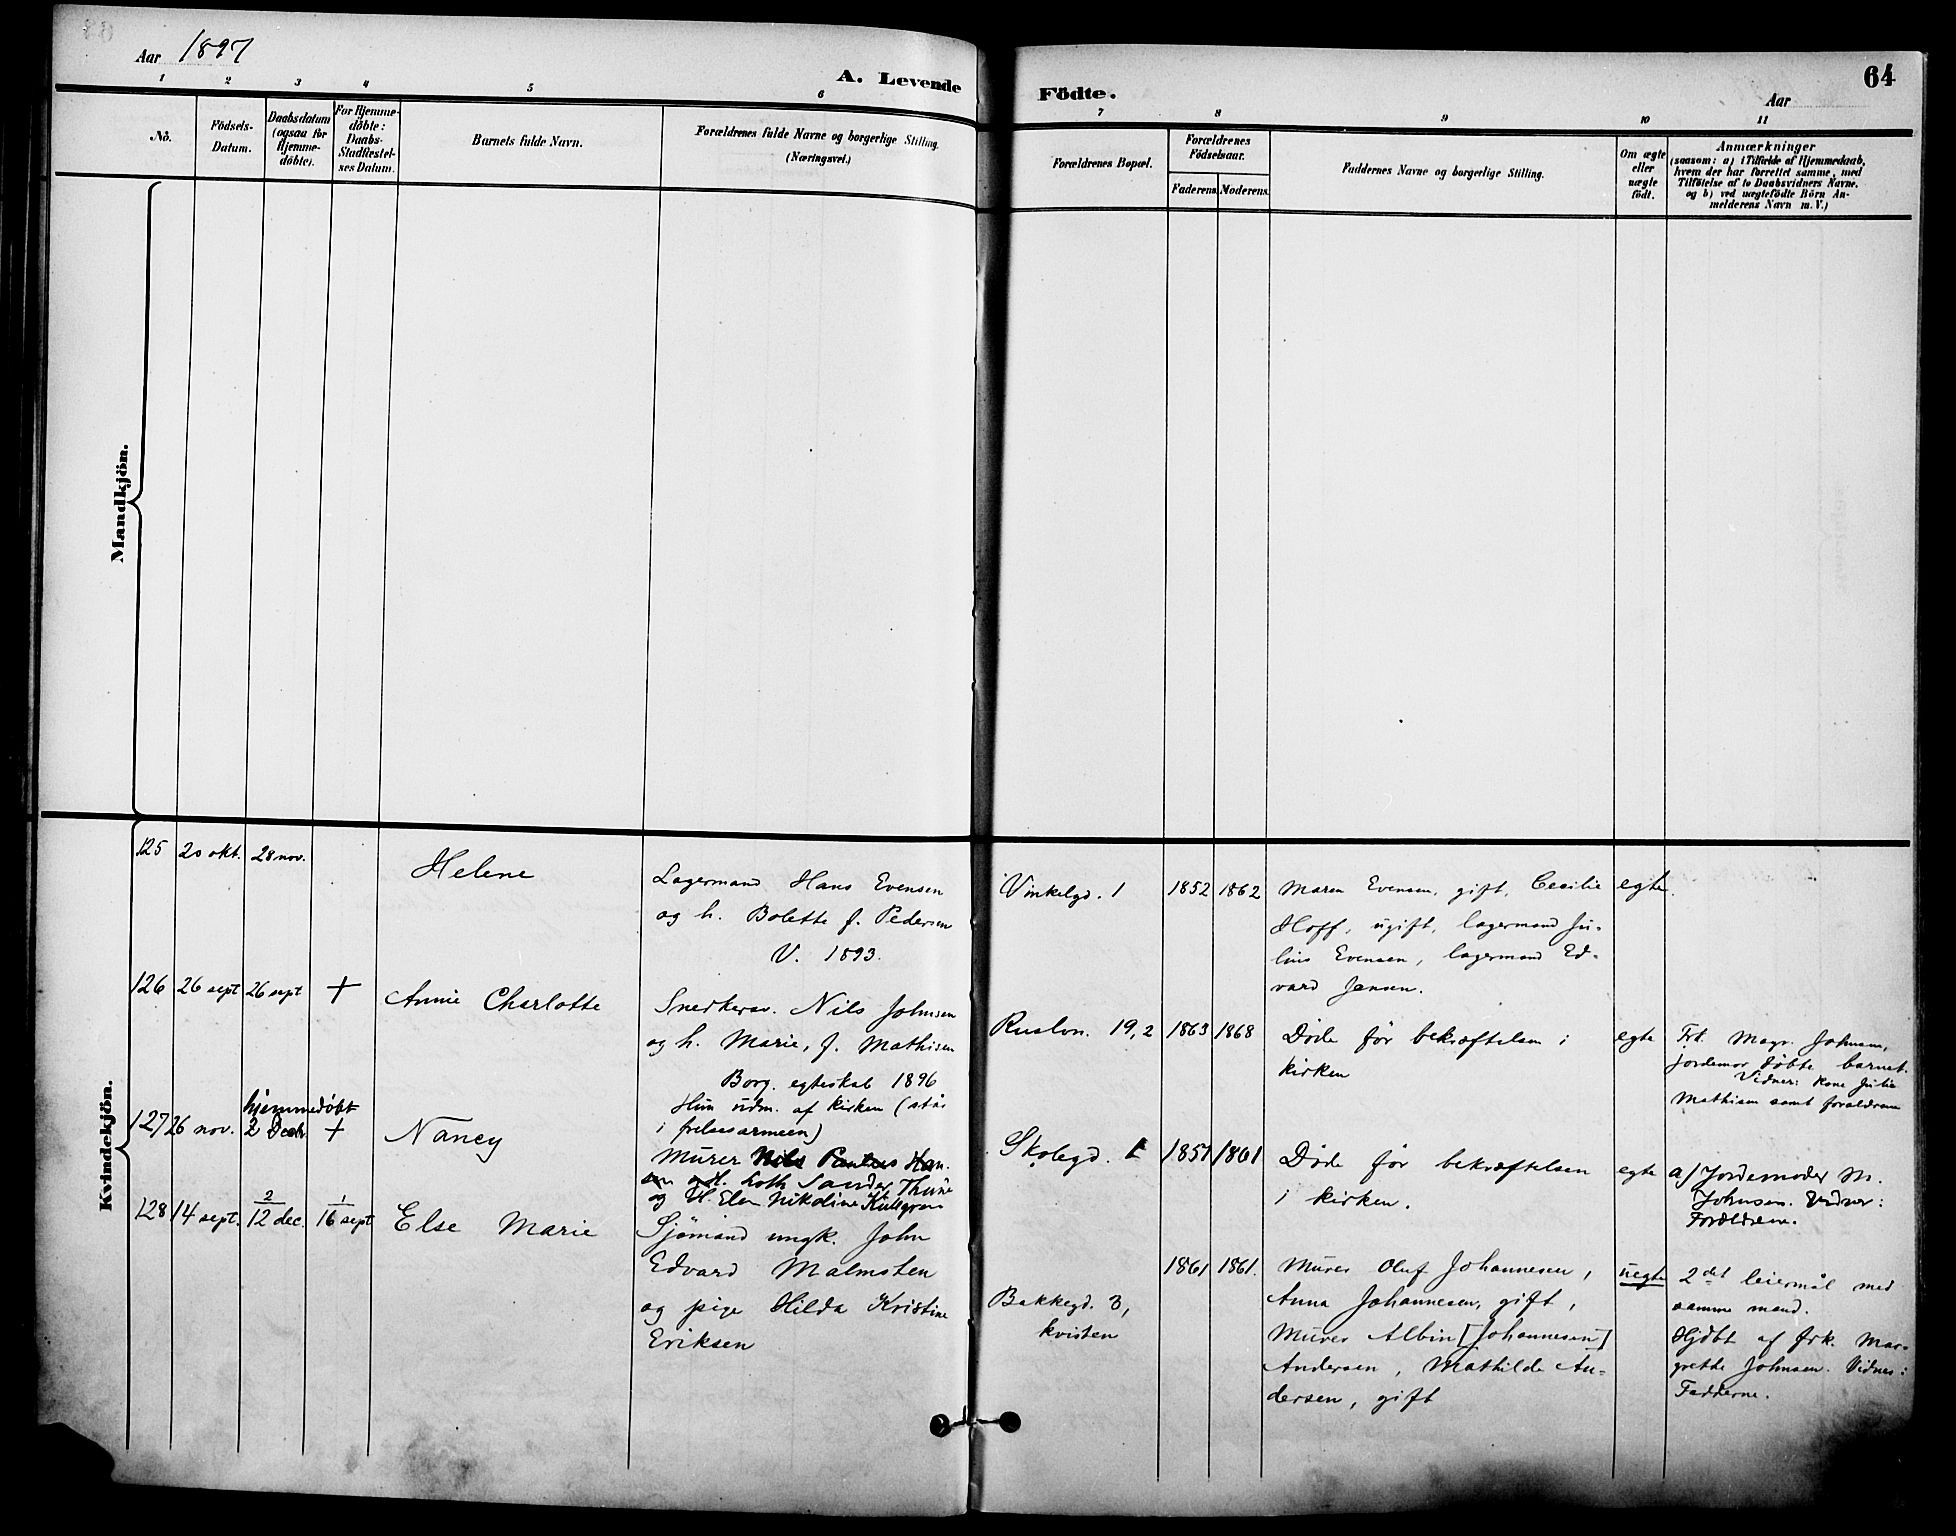 Aar 1897
A. Levende
1 2 3 4 5 6
Nö.
Födsels-
Datum.
Daabsdatum
(ogsaa for
Hjemme-
döbte).
For Hjemme-
döbte:
Daabs-
Stadfæstel-
ses Datum.
Barnets fulde Navn.
Forældrenes fulde Navne og borgerlige Stilling.
(Næringsvei.)
Mandkjön.
Kvindekjön.
125 20 okt. 28 nov.
Helene
Lagermand Hans Evensen
og h. Bolette f. Pedersen
V. 1893.
126 26 sept 26 sept +
Annie Charlotte
Snedkersv. Nils Johnsen
og h. Marie, f. Mathisen
Borg. egteskab 1896
Hun udm. af kirken (står
i frelsesarmeen)
hjemmedøbt
127 26 nov. 2 Decb +
Nancy
Murer Nils Paulus Han-
sen og H. Loth Sander Thune
og H. Elen Nikoline Kullgren
128 14 sept. 2/12 dec. 1/16 sept
Else Marie
Sjømand ungk. John
Edvard Malmsten
og pige Hilda Kristine
Eriksen
Födte.
Aar
64
7 8 9 10 11
Forældrenes Bopæl.
Forældrenes
Födselsaar.
Faderens. Moderens.
Faddernes Navne og borgerlige Stilling.
Om ægte
eller
uægte
födt.
Anmærkninger
(saasom: a) i Tilfælde af Hjemmedaab,
hvem der har forrettet samme, med
Tilföielse af to Daabsvidners Navne.
og b) ved uægtefödte Börn An-
melderens Navn m.V.)
Vinkelgd. 1 1852 1862
Maren Evensen, gift, Cecilie
Hoff, ugift, lagermand Ju-
lius Evensen, lagermand Ed-
vard Jensen.
egte.
Ruslvn. 19,2 1863 1868
Døde før bekræftelsen i
kirken
egte
Frk. Magr. Johnsen,
jordemor døbte barnet.
Vidner: kone Julie
Mathisen samt forældrene
Skolegd. 1 1857 1861
Døde før bekræftelsen
i kirken.
egte
a) Jordemoder M.
Johnsen. Vidner:
Forældrene.
Bakkegd. 3,
kvisten
1861 1861.
Murer Oluf Johannesen,
Anna Johannesen, gift,
Murer Albin [Johannesen]
Andersen, Mathilde An-
dersen, gift
uegte
2det leiermål med
samme mand.
Hjdbt af frk. Mar-
grethe Johnsen. Vidner:
Fadderne.